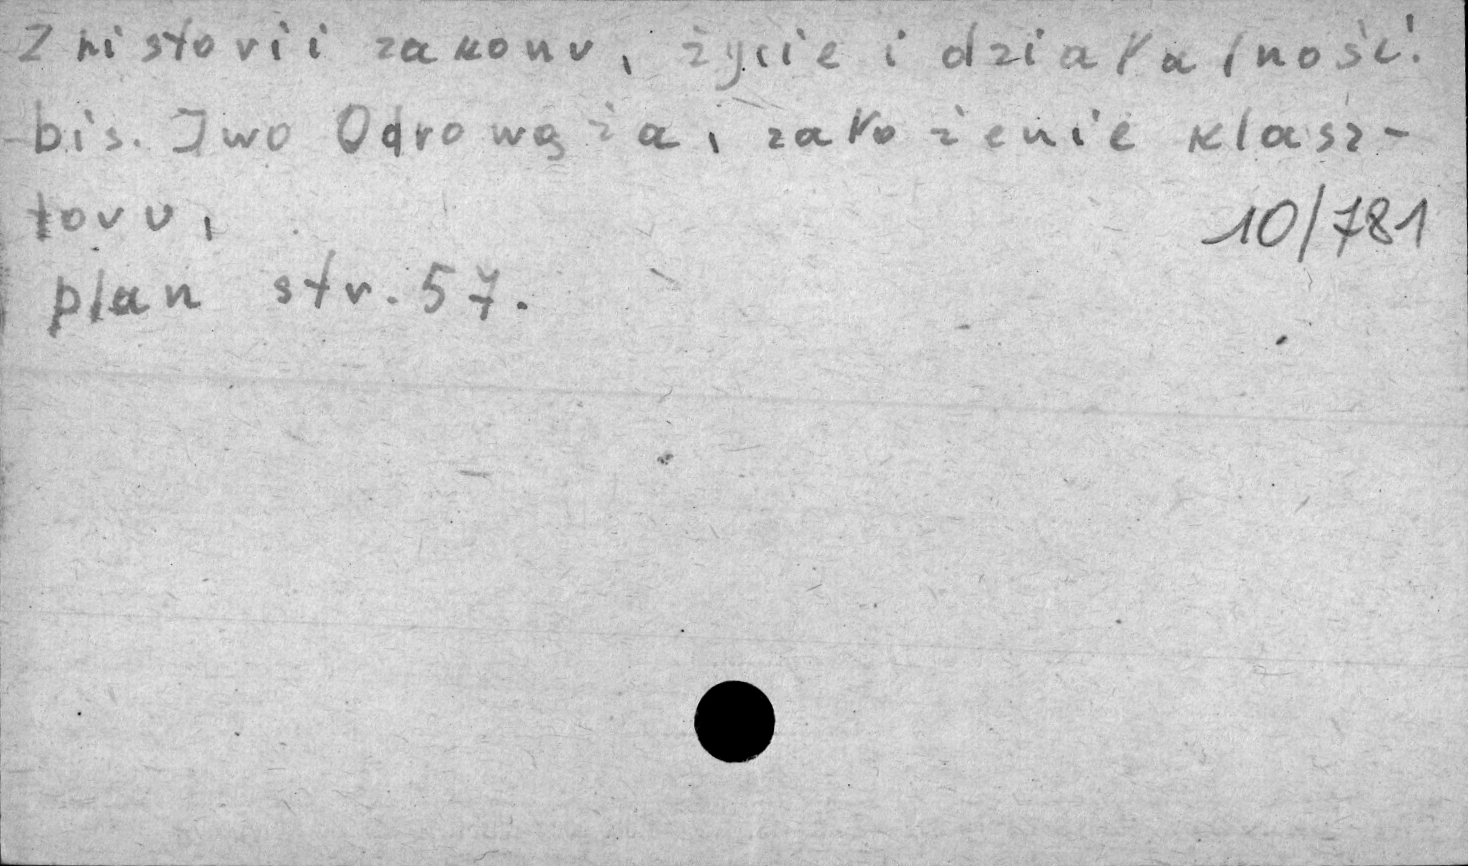 Z historii zakonu, życie i działalność
bis. Iwo Odrowąża, założenie klasz-
toru,
10/781
plan str. 57.